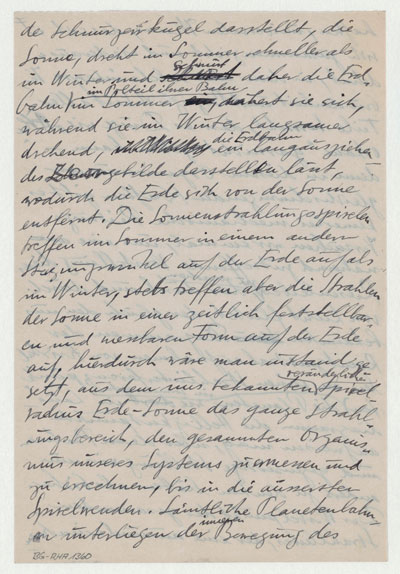 de Schnurzerrkugel darstellt, die
Sonne, dreht im Sommer schneller als
im Winter und schnürt daher die Erd-
bahn im Sommer im Polteil ihrer Bahn, nähert sie sich,
während sie im Winter langsamer
drehend, die Erdbahn ein langausziehen-
des gebilde darstellen lässt,
wodurch die Erde sich von der Sonne
entfernt. Die Sonnenstrahlungsspiralen
treffen im Sommer in einem andern
Steigungswinkel auf der Erde auf als
im Winter, stets treffen aber die Strahlen
der Sonne in einer zeitlich feststellbar-
en und messbaren Form auf der Erde
auf, hierdurch wäre man instand ge-
setzt, aus dem uns bekannten veränderlichen Spiral-
radius Erde-Sonne das ganze Strahl-
ungsbereich, den gesammten Organis-
mus unseres Systems zu ermessen und
zu errechnen, bis in die äussersten
Spiralwenden. Sämtliche Planetenbahn-
en unterliegen der inneren Bewegung des
BG-RHA 1360